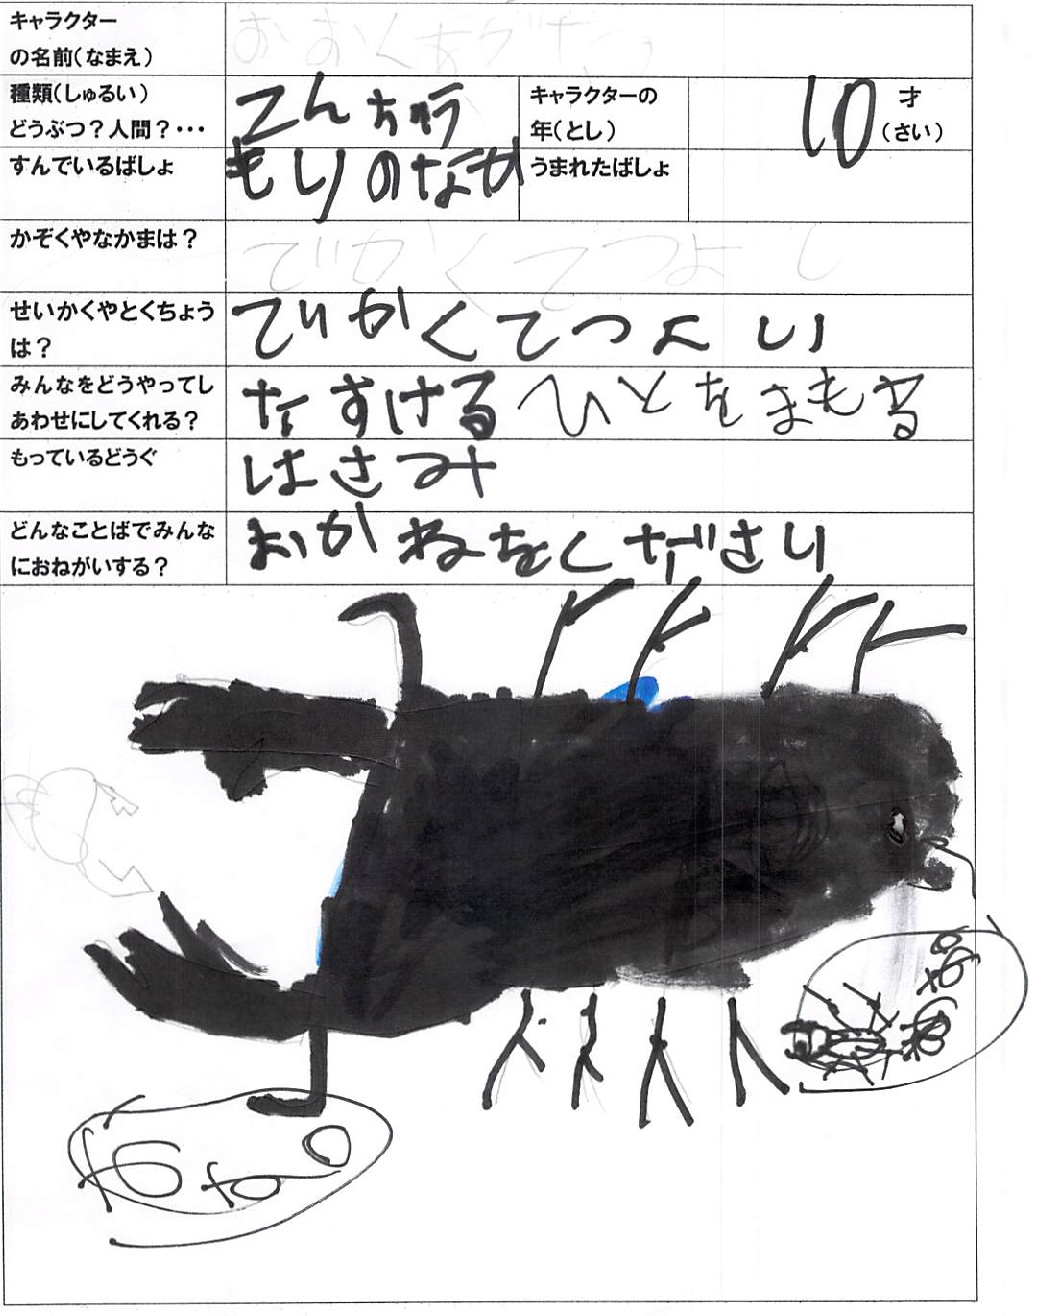 キャラクター
の名前(なまえ)
種類(しゅるい)
どうぶつ?人間?・・・
こんちゅう
キャラクターの
年(とし)
10
才
(さい)
すんでいるばしょ
もりのなか
うまれたばしょ
かぞくやなかまは?
でかくてつよい
せいかくやとくちょう
は?
でかくてつよい
みんなをどうやってし
あわせにしてくれる?
たすける ひとをまもる
もっているどうぐ
はさみ
どんなことばでみんな
におねがいする?
おかねをください